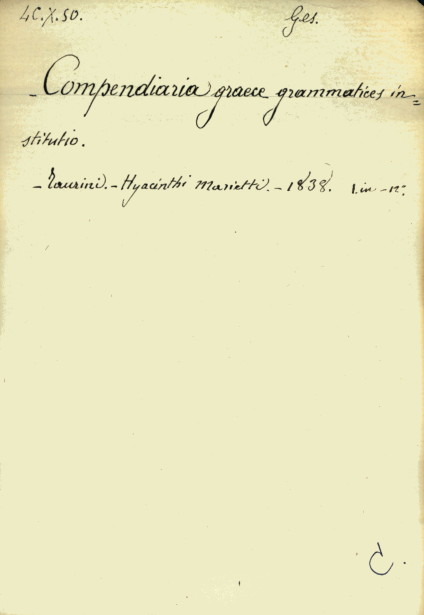 4C.X.50. Ges.
- Compendiaria graece grammatices in=
stitutio.
- Taurini. - Hyacinthi Marietti. - 1838. 1. in - 12°.
C.